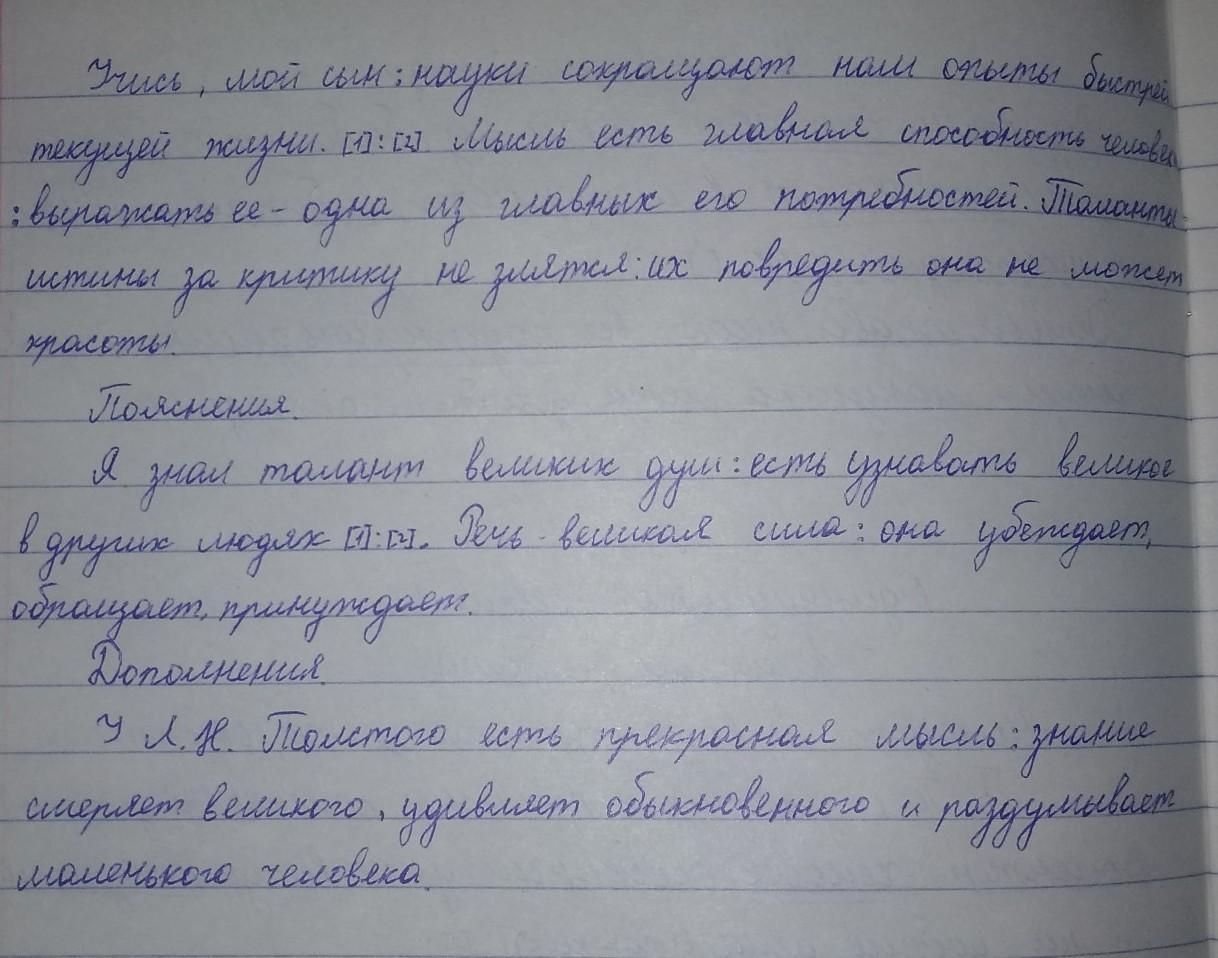 Учись, мой сын: науки сокращают нам опыты быстрей
текущей жизни. [1]:[2] Мысль есть главная способность челове
: выражать ее - одна из главных его потребностей. Таланты
истины за критику не злятся: их повредить она не может
красоты.
Пояснения.
Я знал талант великих душ: есть узнавать великое
в других людях [1]:[2]. Речь - великая сила: она убеждает,
обращает, принуждает.
Дополнения.
У Л.Н. Толстого есть прекрасная мысль: знание
смеряет великого, удивляет обыкновенного и раздумывает
маленького человека.